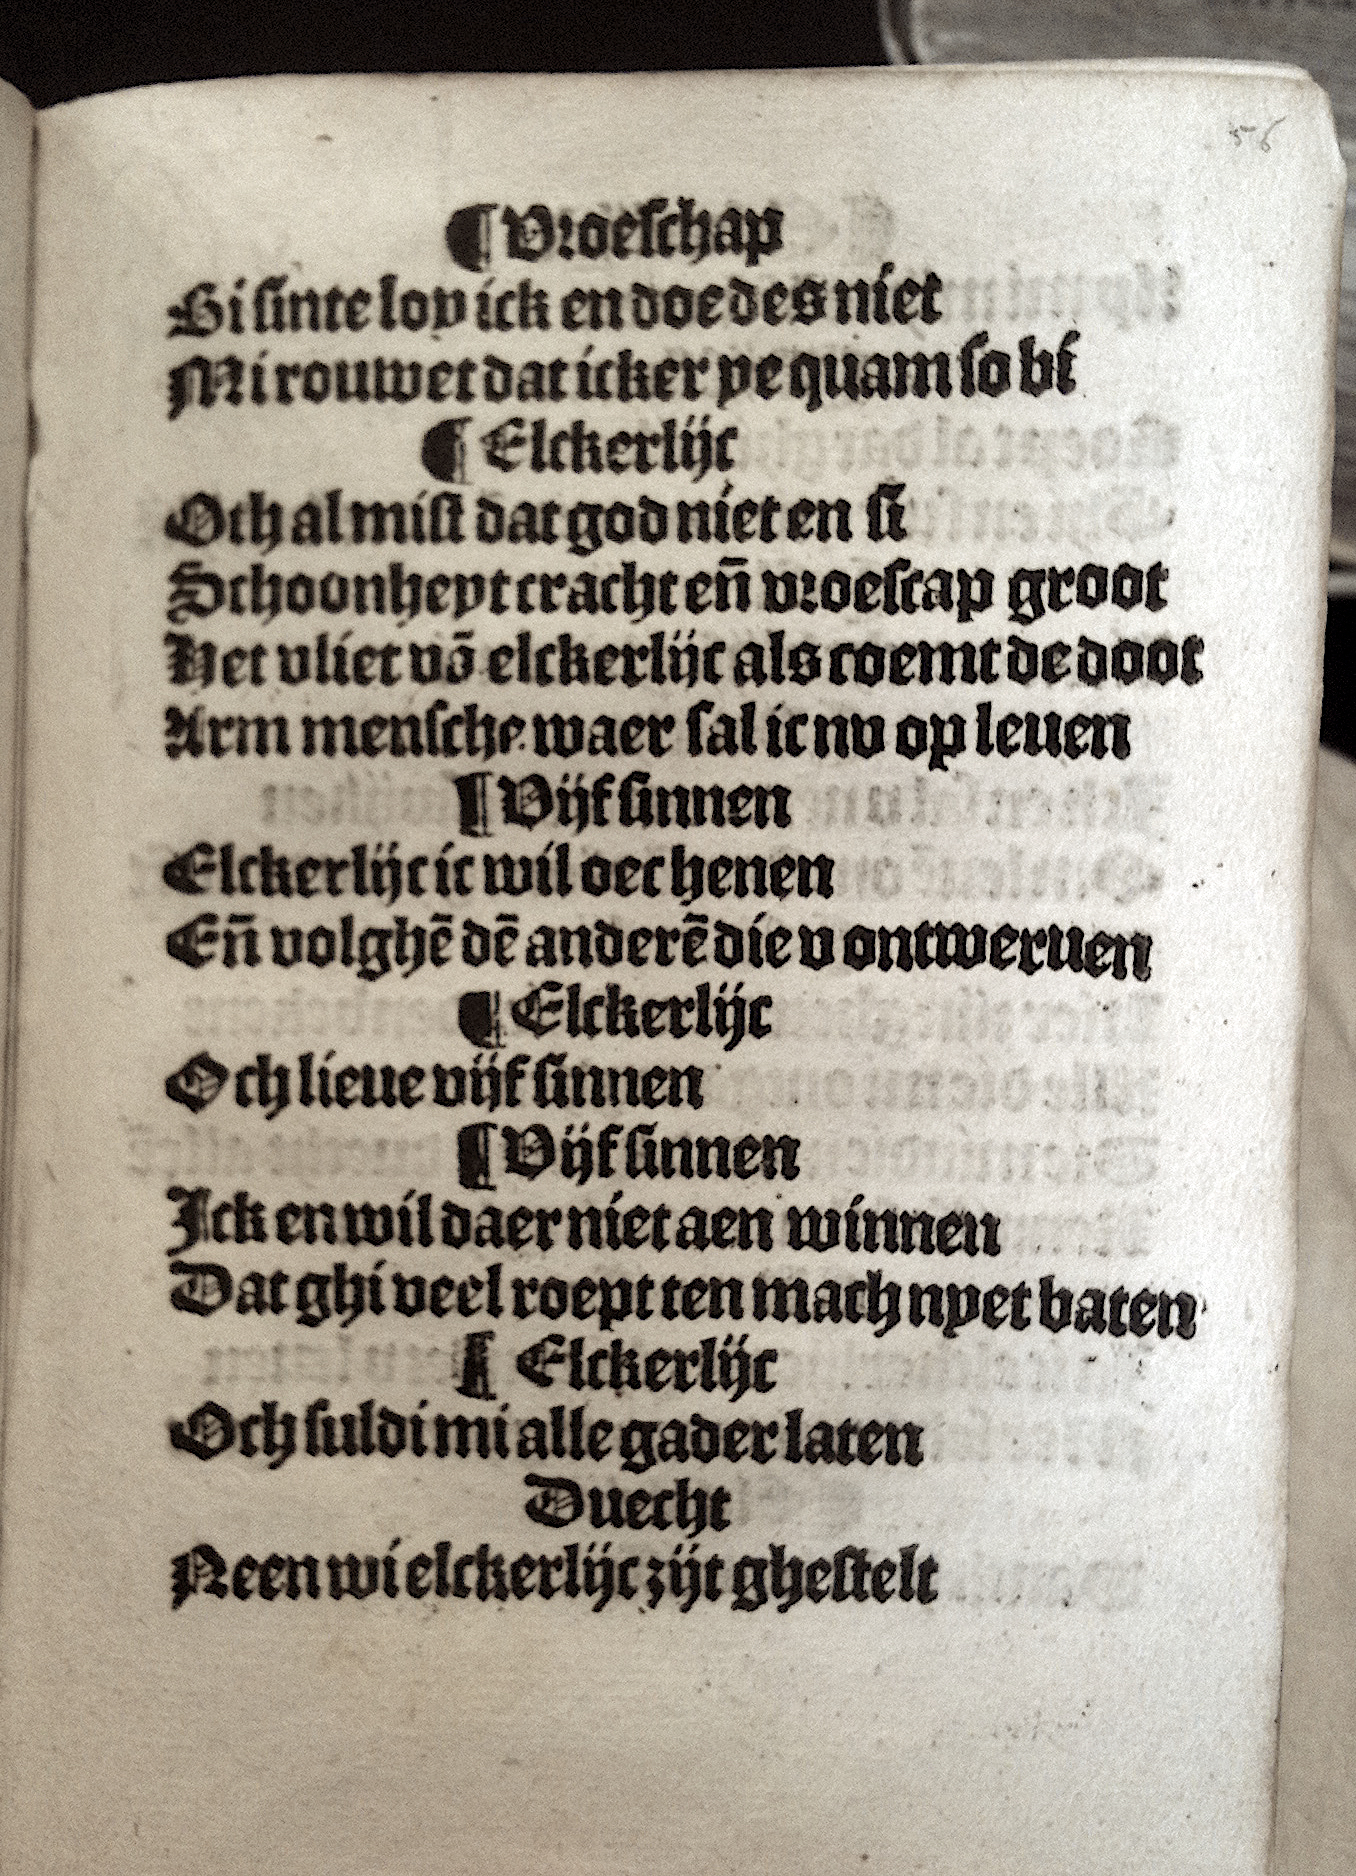 56
¶ Vroeſchap
Bi ſinte loy ick en doe des niet
Mi rouwet dat icker ye quam ſo bi
¶ Elckerlijc
Och al miſt dat god niet en ſi
Schoonheyt cracht en̄ vroeſcap groot
Het vliet vā elckerlijc als coemt de doot
Arm menſche waer ſal ic nv op leuen
¶ Vijf ſinnen
Elckerlijc ic wil oec henen
En̄ volghē dē anderē die v ontweruen
¶ Elckerlijc
Och lieue vijf ſinnen
¶ Vijf ſinnen
Ick en wil daer niet aen winnen
Dat ghi veel roept ten mach nyet baten
¶ Elckerlijc
Och ſuldi mi alle gader laten
Duecht
Neen wi elckerlijc zijt gheſtelt